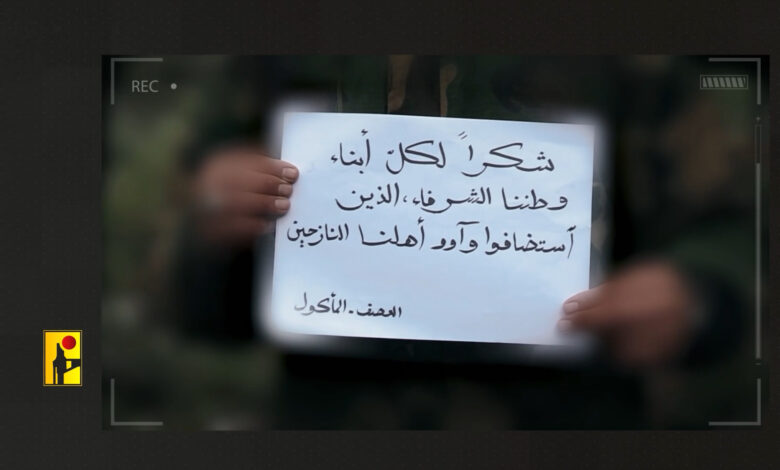 REC
شكراً لكلّ أبناء
وطننا الشرفاء، الذين
استضافوا وآوو أهلنا النازحين
العصف - المأكول